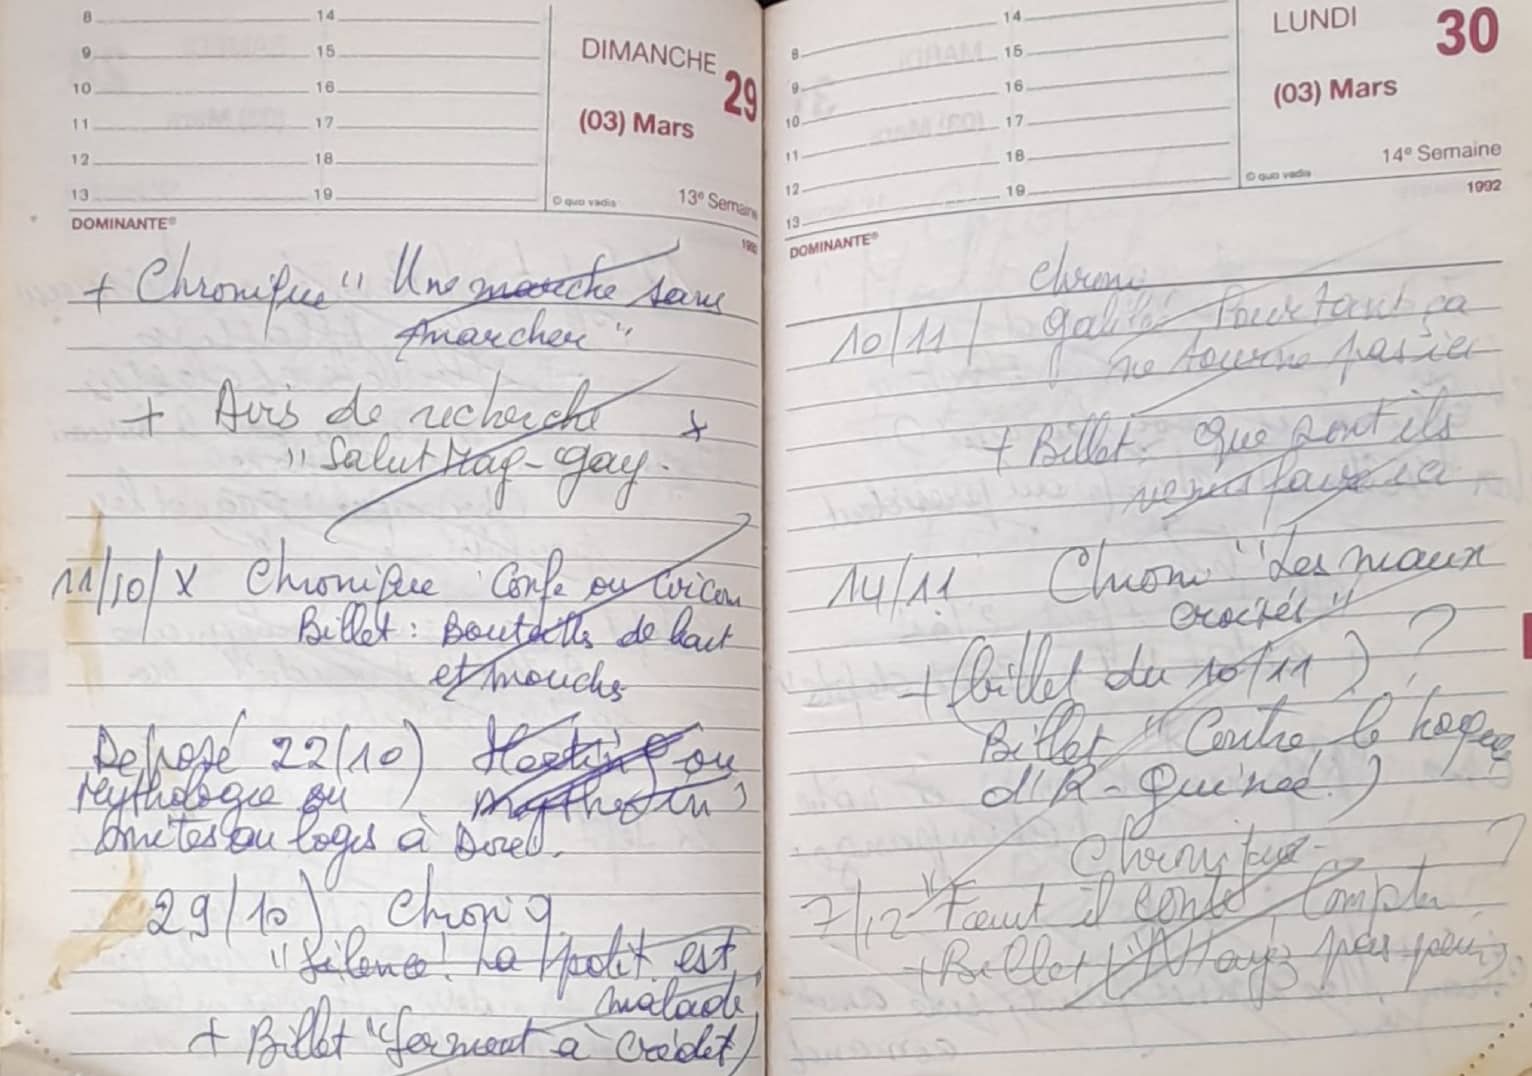 8 14
9 15
10 16
11 17
12 18
13 19
DIMANCHE 29
(03) Mars
© quo vadis
13e Semaine
DOMINANTE®
+ Chronique " Une marche sans
marcher "
+ Avis de recherche x
" Salut Mag-gay.
11/10/ X Chronique Confe ou
Billet : Bouteille de lait
et mouche
Déposé 22/10) ou
Mythologie ou
au logis à
29/10) Chroniq
"Silence ! La polit est
malade
+ Billet "Serment à crédit)
8 14
9 15
10 16
11 17
12 18
13 19
LUNDI 30
(03) Mars
© quo vadis
14e Semaine
1992
DOMINANTE®
Chroni
10/11/ Galilée Pourtant ça
ne tourne pas ici
+ Billet : Que sont ils
venus faire ici
14/11 Chroni "Les maux
croisés"
+ (billet du 10/11 ) ?
Billet " Contre le
d'R-Guinée.)
Chronique ?
7/12 "Faut il conte Compter
+ Billet pas peur